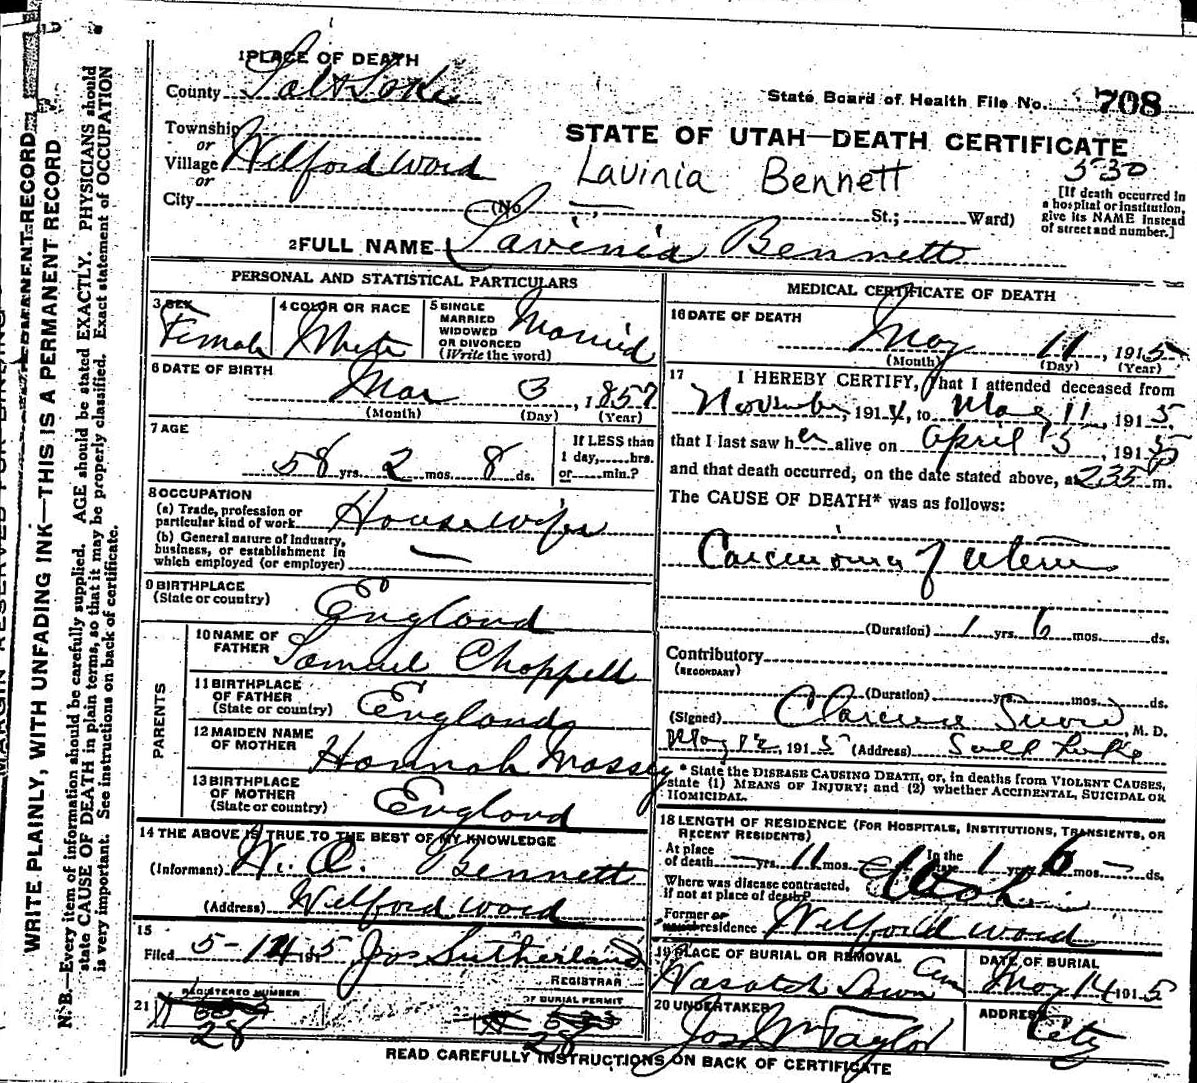 1 PLACE OF DEATH
County Salt Lake
State Board of Health File No. 708
Township
or
Village Wilford Ward
or
City
STATE OF UTAH—DEATH CERTIFICATE
Lavinia Bennett
530
[If death occurred in a hospital or institution, give its NAME instead of street and number.]
(No. St.; Ward)
2 FULL NAME Lavinia Bennett
PERSONAL AND STATISTICAL PARTICULARS
3 SEX Female
4 COLOR OR RACE White
5 SINGLE MARRIED WIDOWED OR DIVORCED (Write the word) Married
6 DATE OF BIRTH
Mar 3, 1857
(Month) (Day) (Year)
7 AGE
58 yrs. 2 mos. 8 ds.
If LESS than 1 day, hrs. or min.?
8 OCCUPATION
(a) Trade, profession or particular kind of work Housewife
(b) General nature of industry, business, or establishment in which employed (or employer) —
9 BIRTHPLACE
(State or country) England
PARENTS
10 NAME OF FATHER Samuel Chappell
11 BIRTHPLACE OF FATHER
(State or country) England
12 MAIDEN NAME OF MOTHER Hannah Massey
13 BIRTHPLACE OF MOTHER
(State or country) England
14 THE ABOVE IS TRUE TO THE BEST OF MY KNOWLEDGE
(Informant) Bennett
(Address) Wilford Ward
15
Filed 5-14 1915 Jos Sutherland
REGISTRAR
REGISTERED NUMBER
21 28
OF BURIAL PERMIT
28
MEDICAL CERTIFICATE OF DEATH
16 DATE OF DEATH
May 11, 1915
(Month) (Day) (Year)
17 I HEREBY CERTIFY, That I attended deceased from
November, 1914, to May 11, 1915.
that I last saw her alive on April 5, 1915
and that death occurred, on the date stated above, at 235 P m.
The CAUSE OF DEATH* was as follows:
Carcinoma of uterus
(Duration) 1 yrs. 6 mos. ds.
Contributory
(SECONDARY)
(Duration) yrs. mos. ds.
(Signed) Clarence Snow, M. D.
May 12, 1915 (Address) Salt Lake
* State the DISEASE CAUSING DEATH, or, in deaths from VIOLENT CAUSES, state (1) MEANS OF INJURY; and (2) whether ACCIDENTAL, SUICIDAL OR HOMICIDAL.
18 LENGTH OF RESIDENCE (FOR HOSPITALS, INSTITUTIONS, TRANSIENTS, OR RECENT RESIDENTS)
At place of death — yrs. 11 mos. In the yrs. mos. — ds.
Where was disease contracted, if not at place of death?
Former or residence Wilford Ward
19 PLACE OF BURIAL OR REMOVAL
Wasatch Lawn Cem
DATE OF BURIAL
May 14 1915
20 UNDERTAKER
Jos Wm Taylor
ADDRESS
City
READ CAREFULLY INSTRUCTIONS ON BACK OF CERTIFICATE
WRITE PLAINLY, WITH UNFADING INK—THIS IS A PERMANENT RECORD
N. B.—Every item of information should be carefully supplied. AGE should be stated EXACTLY. PHYSICIANS should
state CAUSE OF DEATH in plain terms, so that it may be properly classified. Exact statement of OCCUPATION
is very important. See instructions on back of certificate.